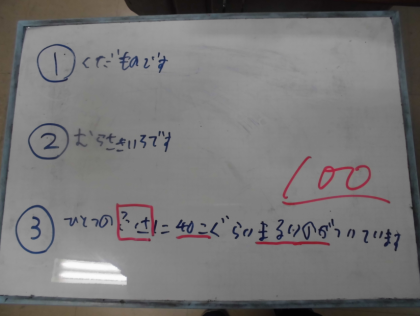 ① くだものです
② むらさきいろです
100
③ ひとつの ふさに 40こぐらいまるいのがついています